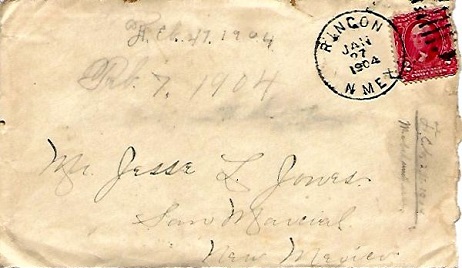 Feb. 7, 1904
RINCON
JAN
27
1904
N MEX.
Feb. 7, 1904
Mr. Jesse L. Jones.
San Marcial.
New Mexico